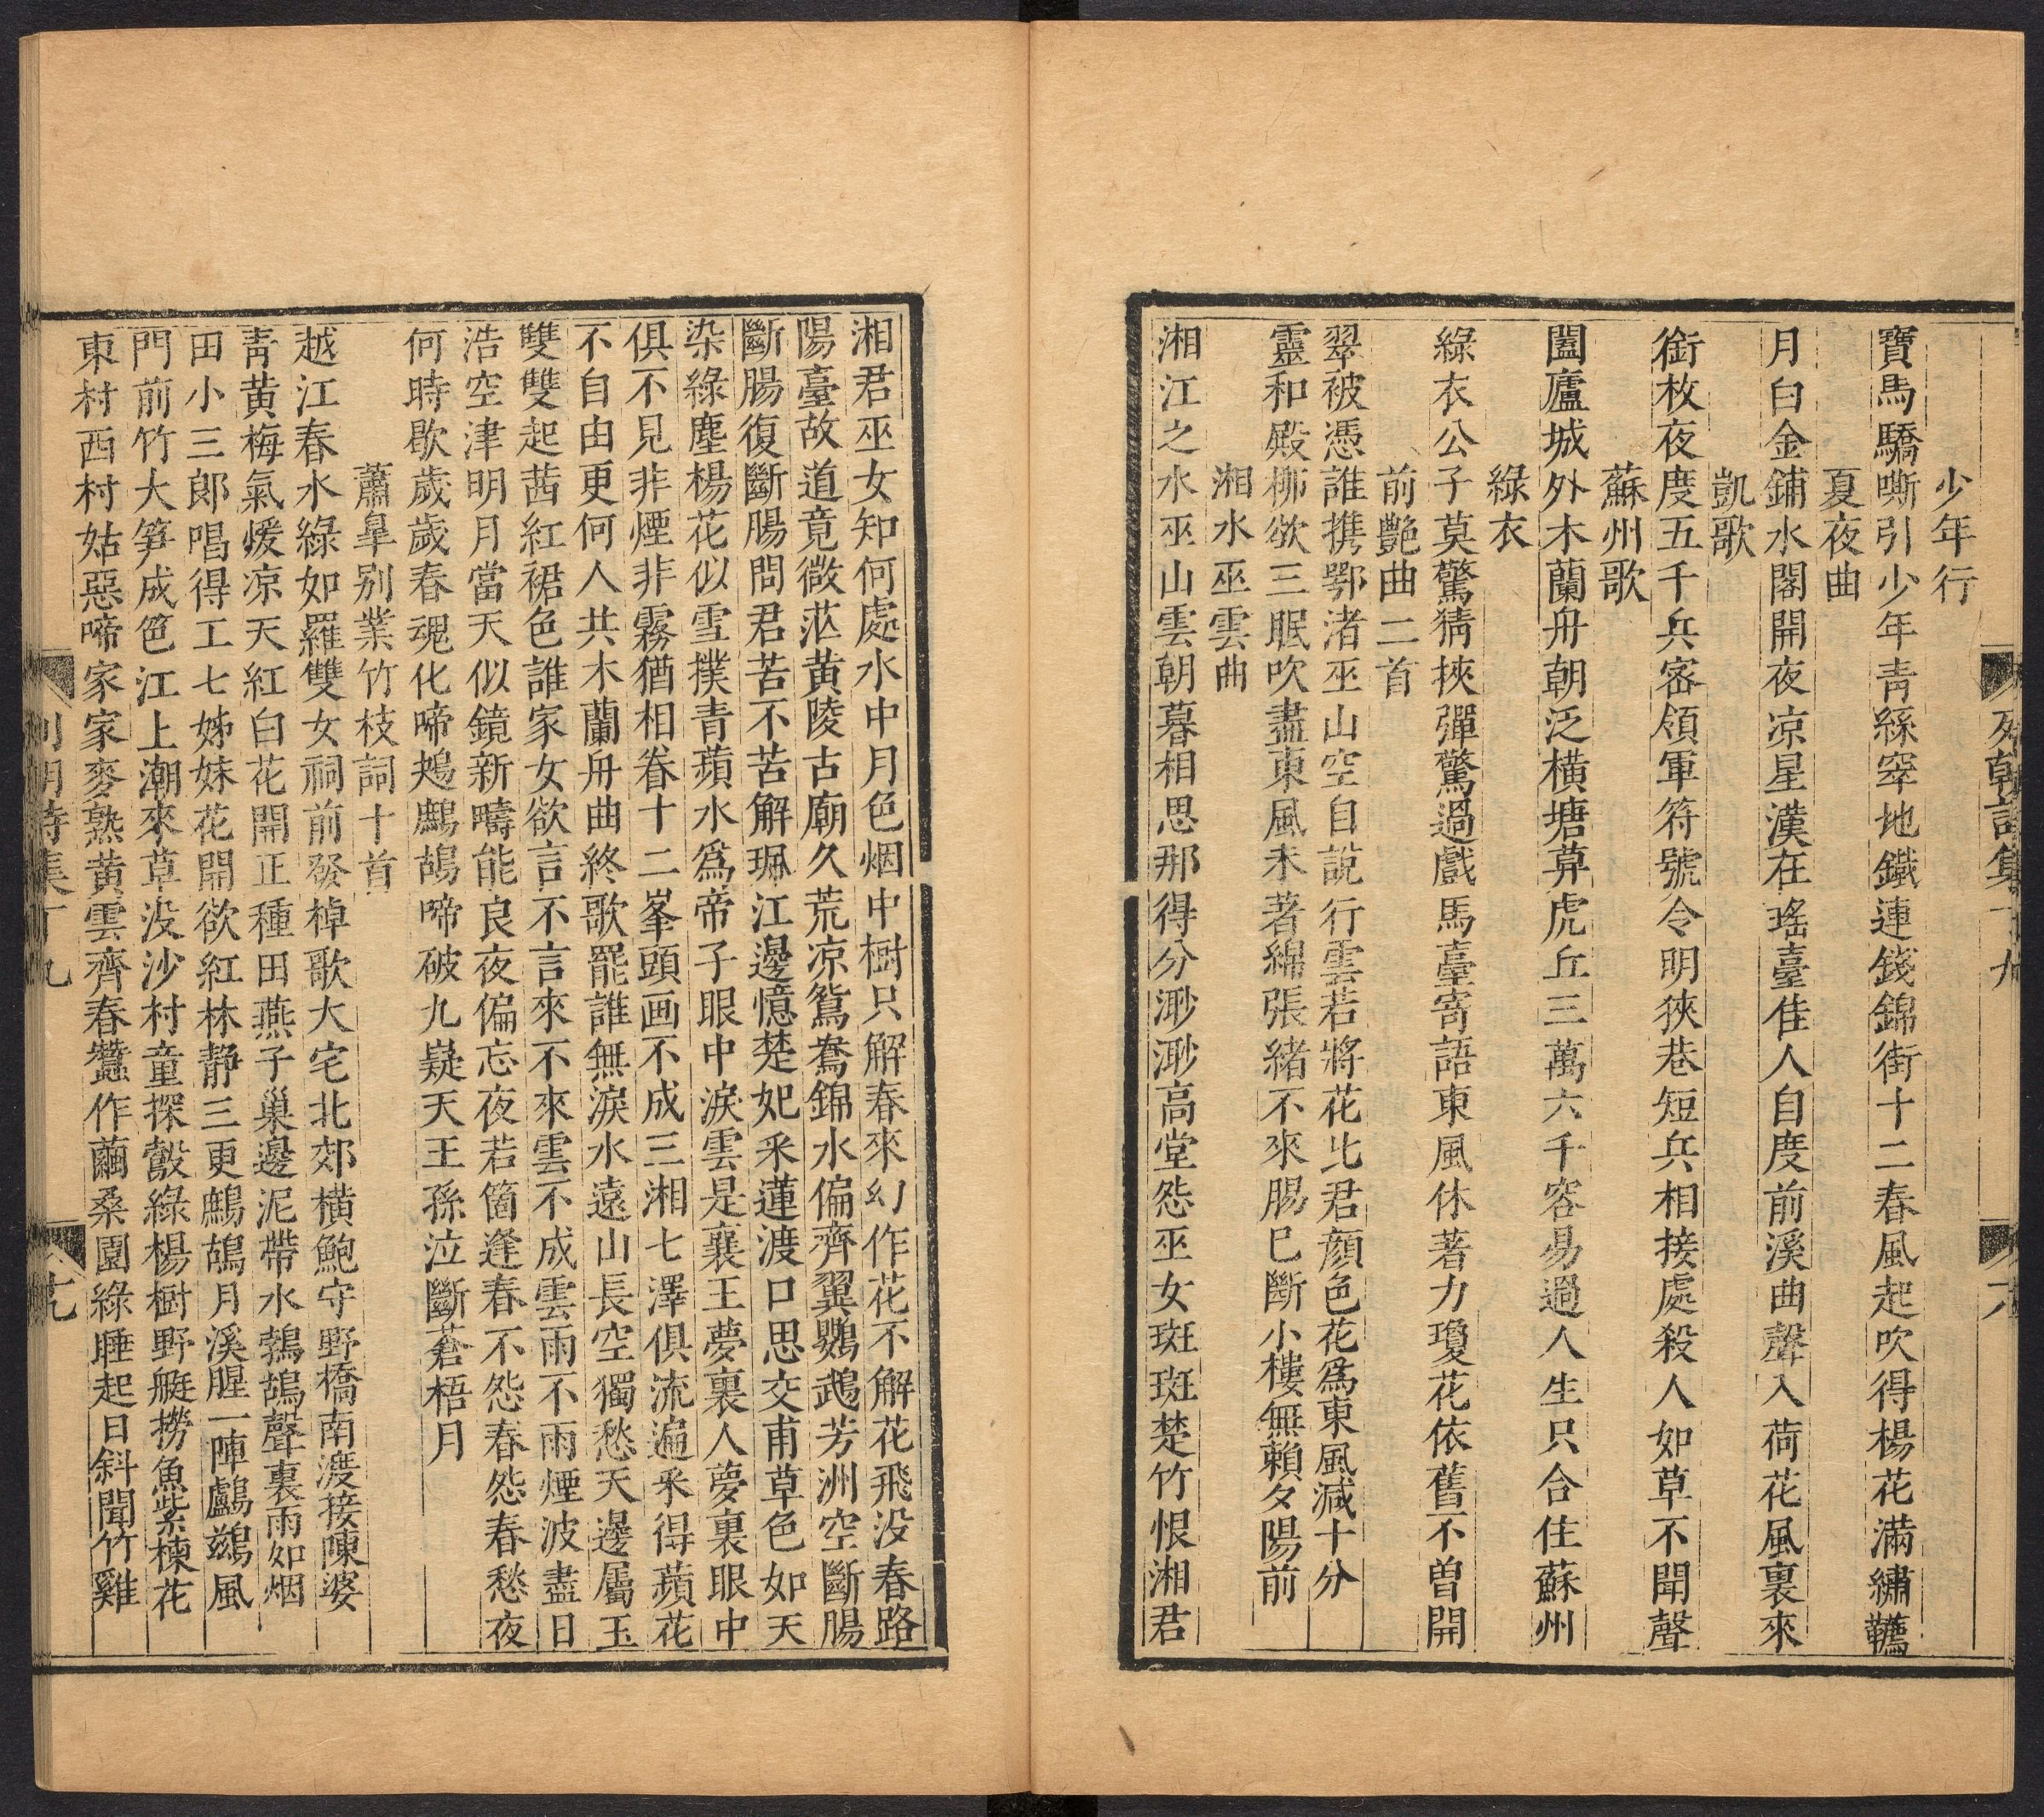 少年行
寶馬驕嘶引少年青絲窣地鐵連錢錦街十二春風起吹得楊花滿繡韉
夏夜曲
月白金鋪水閣開夜凉星漢在瑤臺佳人自度前溪曲聲入荷花風裏來
凱歌
銜枚夜度五千兵密領軍符號令明狹巷短兵相接處殺人如草不聞聲
蘇州歌
闔廬城外木蘭舟朝泛橫塘暮虎丘三萬六千容易過人生只合住蘇州
綠衣
綠衣公子莫驚猜挾彈驚過戲馬臺寄語東風休著力瓊花依舊不曾開
前艷曲二首
翠被憑誰携鄂渚巫山空自說行雲若將花比君顔色花爲東風減十分
靈和殿柳欲三眠吹盡東風未著綿張緒不來腸已斷小樓無賴夕陽前
湘水巫雲曲
湘江之水巫山雲朝暮相思那得分渺渺高堂怨巫女斑斑楚竹恨湘君
湘君巫女知何處水中月色烟中樹只解春來幻作花不解花飛没春路
陽臺故道竟微茫黄陵古廟久荒凉鴛鴦錦水偏齊翼鸚鵡芳洲空斷腸
斷腸復斷腸問君苦不苦解珮江邊憶楚妃采蓮渡口思交甫草色如天
染綠塵楊花似雪撲青蘋水爲帝子眼中淚雲是襄王夢裏人夢裏眼中
俱不見非煙非霧猶相眷十二峯頭画不成三湘七澤俱流遍采得蘋花
不自由更何人共木蘭舟曲終歌罷誰無淚水遠山長空獨愁天邊屬玉
雙雙起茜紅裙色誰家女欲言不言來不來雲不成雲雨不雨煙波盡日
浩空津明月當天似鏡新疇能良夜偏忘夜若箇逢春不怨春怨春愁夜
何時歇歲歲春魂化啼鴂鷓鴣啼破九嶷天王孫泣斷蒼梧月
蕭臯别業竹枝詞十首
越江春水綠如羅雙女祠前發棹歌大宅北郊橫鮑守野橋南渡接陳婆
靑黄梅氣煖凉天紅白花開正種田燕子巢邊泥帶水鵓鴣聲裏雨如烟
田小三郎唱得工七姊妹花開欲紅林静三更鷓鴣月溪腥一陣鸕鷀風
門前竹大笋成笆江上潮來草没沙村童探鷇綠楊樹野艇撈魚紫楝花
東村西村姑惡啼家家麥熟黄雲齊春蠶作繭桑園綠睡起日斜聞竹雞